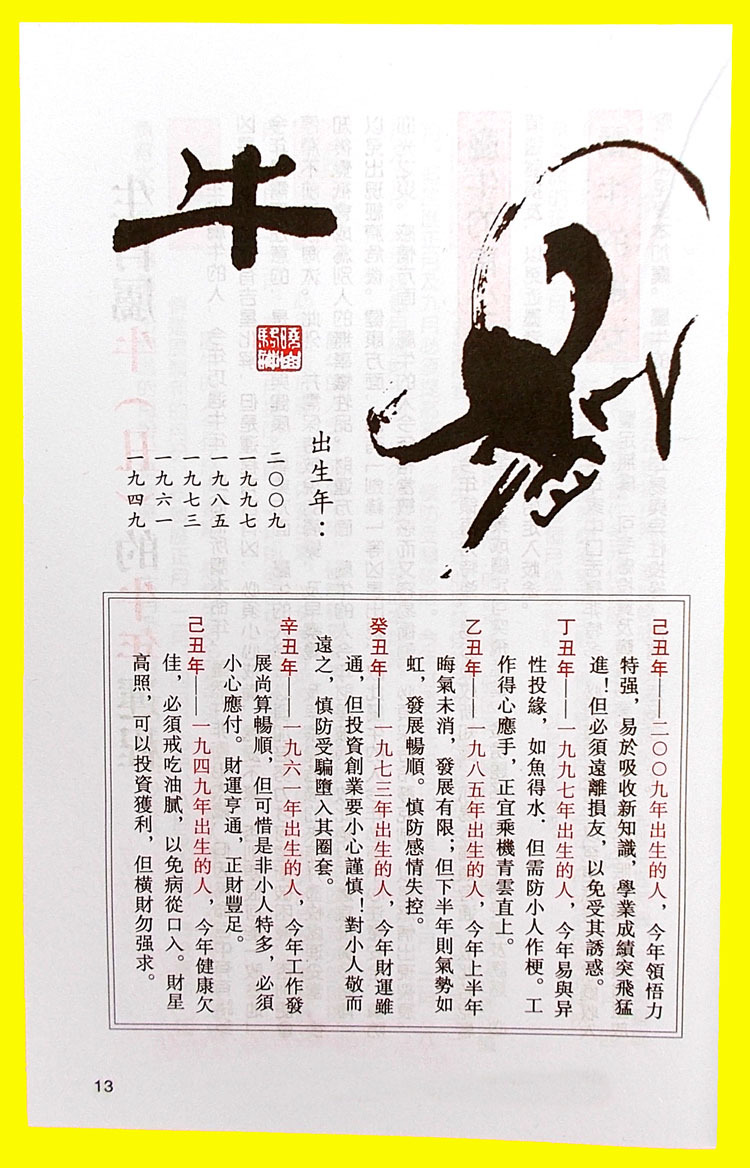 牛
出生年：
二〇〇九
一九九七
一九八五
一九七三
一九六一
一九四九
己丑年——二〇〇九年出生的人，今年領悟力
特强，易於吸收新知識，學業成績突飛猛
進！但必須遠離損友，以免受其誘惑。
丁丑年——一九九七年出生的人，今年易與异
性投緣，如魚得水．但需防小人作梗。工
作得心應手，正宜乘機青雲直上。
乙丑年——一九八五年出生的人，今年上半年
晦氣未消，發展有限；但下半年則氣勢如
虹，發展暢順。慎防感情失控。
癸丑年——一九七三年出生的人，今年財運雖
通，但投資創業要小心謹慎！對小人敬而
遠之，慎防受騙墮入其圈套。
辛丑年——一九六一年出生的人，今年工作發
展尚算暢順，但可惜是非小人特多，必須
小心應付。財運亨通，正財豐足。
己丑年——一九四九年出生的人，今年健康欠
佳，必須戒吃油膩，以免病從口入。財星
高照，可以投資獲利，但橫財勿强求。
13